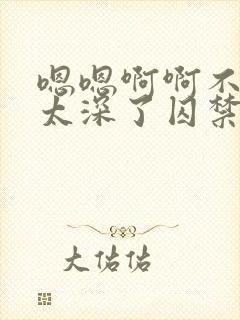 嗯嗯啊啊不
太深了囚禁
大佑佑